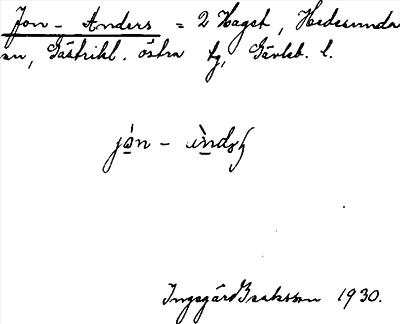 Jon-Anders = 2 Hagst, Hedesunda
sn, Gästrikl. östra tg, Gävleb. l.
jòn -
Ingegärd Isaksson 1930.